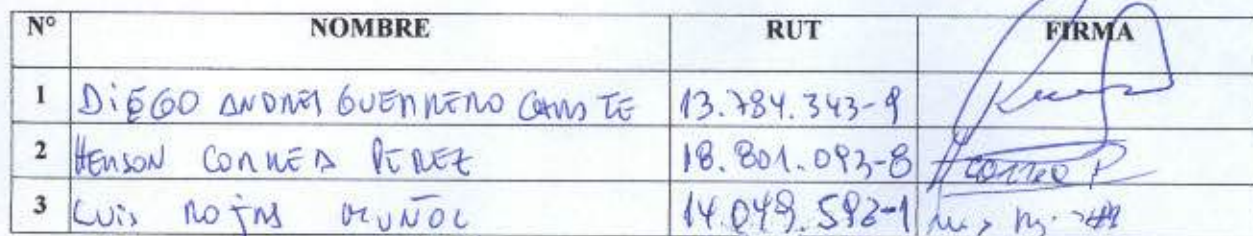 N° NOMBRE RUT FIRMA
1 DiEGO ANDRES GUERRERO 13.784.343-9
2 HENSON CORREA PEREZ 18.801.093-8 CORREA P
3 LUis ROJAS MUÑOZ 14.049.592-1